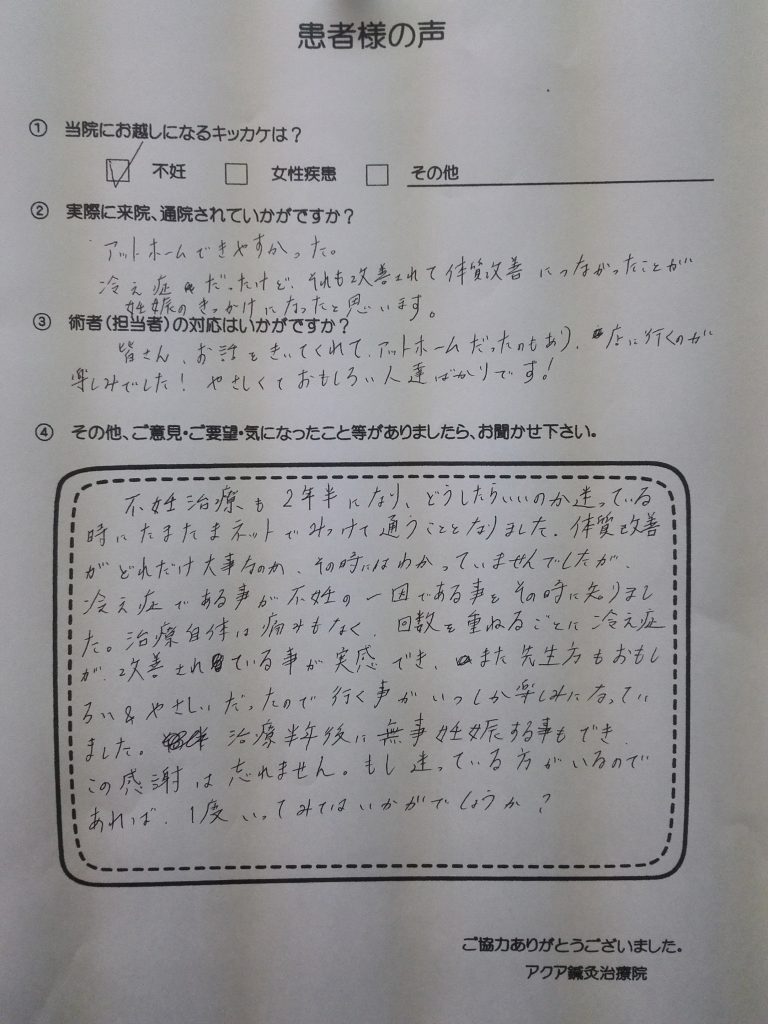 患者様の声
① 当院にお越しになるキッカケは？
不妊 女性疾患 その他
② 実際に来院、通院されていかがですか？
アットホームできやすかった。
冷え症だったけど、それも改善されて体質改善につながったことが
妊娠のきっかけになったと思います。
③ 術者（担当者）の対応はいかがですか？
皆さん、お話をきいてくれて、アットホームだったのもあり、店に行くのが
楽しみでした！ やさしくておもしろい人達ばかりです！
④ その他、ご意見・ご要望・気になったこと等がありましたら、お聞かせ下さい。
不妊治療も2年半になり、どうしたらいいのか迷っている
時にたまたまネットでみつけて通うこととなりました。体質改善
がどれだけ大事なのか、その時にはわかっていませんでしたが、
冷え症である事が不妊の一因である事をその時に知りまし
た。治療自体は痛みもなく、回数を重ねるごとに冷え症
が改善されている事が実感でき、また先生方もおもし
ろい&やさしいだったので行く事がいつしか楽しみになってい
ました。治療半年後に無事妊娠する事もでき、
この感謝は忘れません。もし迷っている方がいるので
あれば、1度いってみてはいかがでしょうか？
ご協力ありがとうございました。
アクア鍼灸治療院